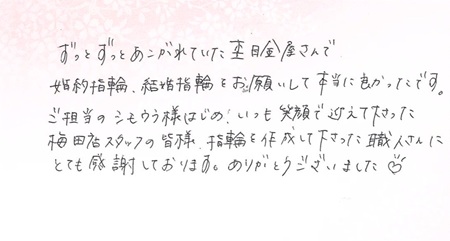 ずっとずっとあこがれていた杢目金屋さんで
婚約指輪、結婚指輪をお願いして本当に良かったです。
ご担当のシモウラ様はじめ、いつも笑顔で迎えて下さった
梅田店スタッフの皆様、指輪を作成して下さった職人さんに
とても感謝しております。ありがとうございました♡